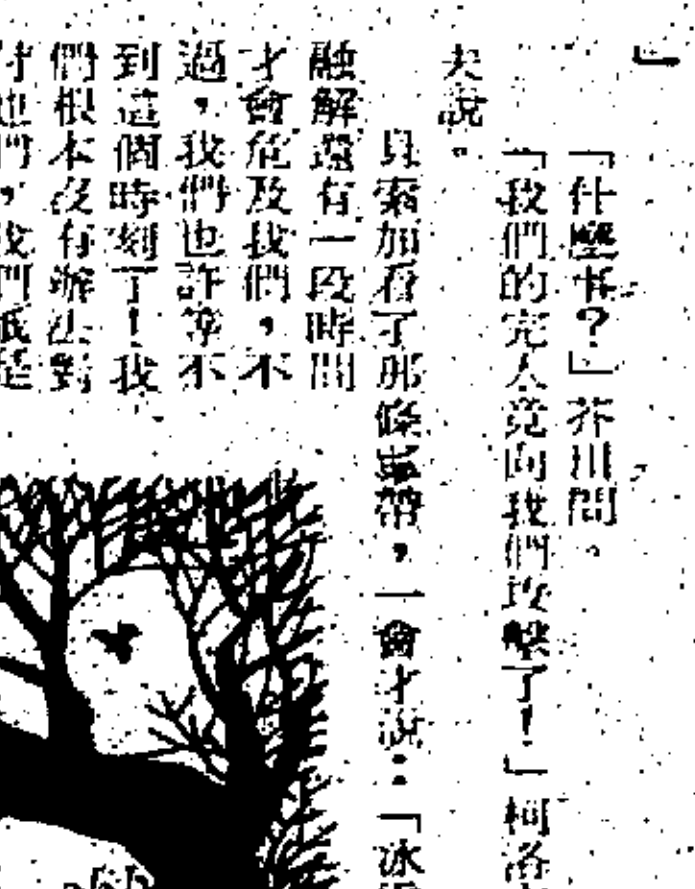 」
「什麼事？」芥川問。
「我們的完人竟向我們攻擊了！」柯洛
夫說。
貝索加看了那條螢帶，一會才說：「冰
融解還有一段時間
才會危及我們，不
過，我們也許等不
到這個時刻了！我
們根本沒有辦法對
付他們，我們祇是